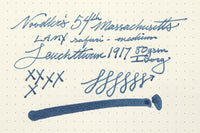 Noodler's 54th Massachusetts
LAMY safari - medium
Leuchtturm 1917 80gsm
Ivory
XXX
XXX